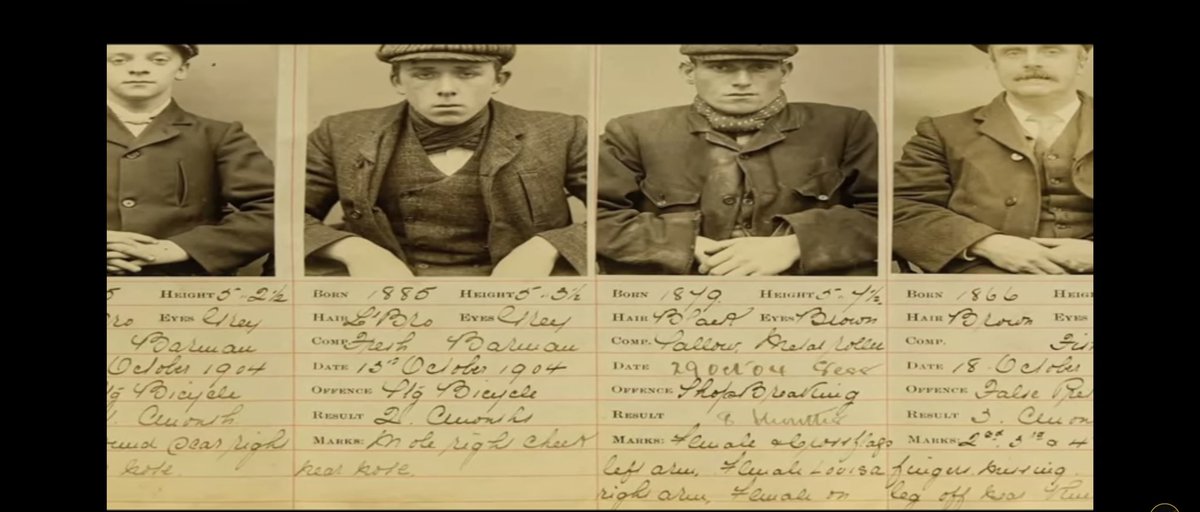 HEIGHT 5-2½
EYES Grey
Barman
October 1904
Bicycle
right
nose.
BORN 1885 HEIGHT 5-3½
HAIR Lt Bro EYES Grey
COMP. Fresh Barman
DATE 13th October 1904
OFFENCE Stg Bicycle
RESULT 2. Cmonths
MARKS: Mole right cheek
near nose.
BORN 1879. HEIGHT 5-4½.
HAIR Black EYES Brown
COMP. Sallow, Metal roller
DATE 29 Oct 04
OFFENCE Shop Breaking
RESULT 8 months
MARKS: Female & Cross flags
left arm, Female Louisa
right arm, Female on
BORN 1866 HEIGH
HAIR Brown EYES
COMP.
DATE 18. October
OFFENCE False
RESULT 3. Cmon
MARKS: 2nd. 3rd & 4
fingers missing
leg off